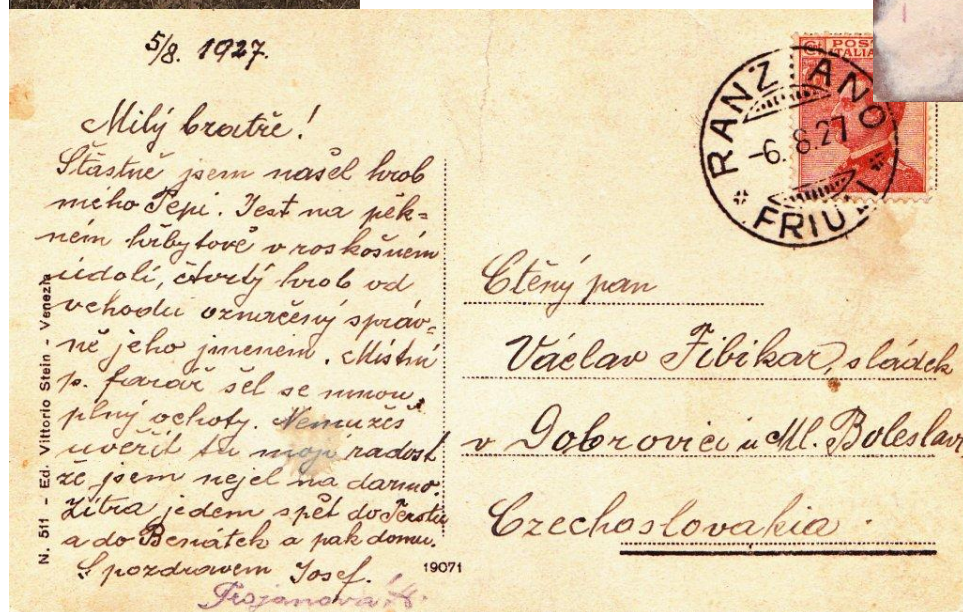 5/8. 1927.
Milý bratře!
Štástně jsem našel hrob
mého Pepi. Jest na pěk=
ném hřbytově v roskošném
údolí, čtvrtý hrob od
vchodu označený správ=
ně jeho jmenem. Místní
p. farář šel se mnou
plný ochoty. Nemužeš
uvěřit tu moji radost
že jsem nejel na darmo.
Zítra jedem spět do Terstu
a do Benátek a pak domu.
S pozdravem Josef.
Trojanová A.
N. 511 - Ed. Vittorio Stein - Venezia
19071
POSTE
ITALIA
RANZIANO
-6.8.27
FRIULI
Ctěný pan
Václav Fibikar, sládek
v Dobrovici u Ml. Boleslavi
Czechoslovakia